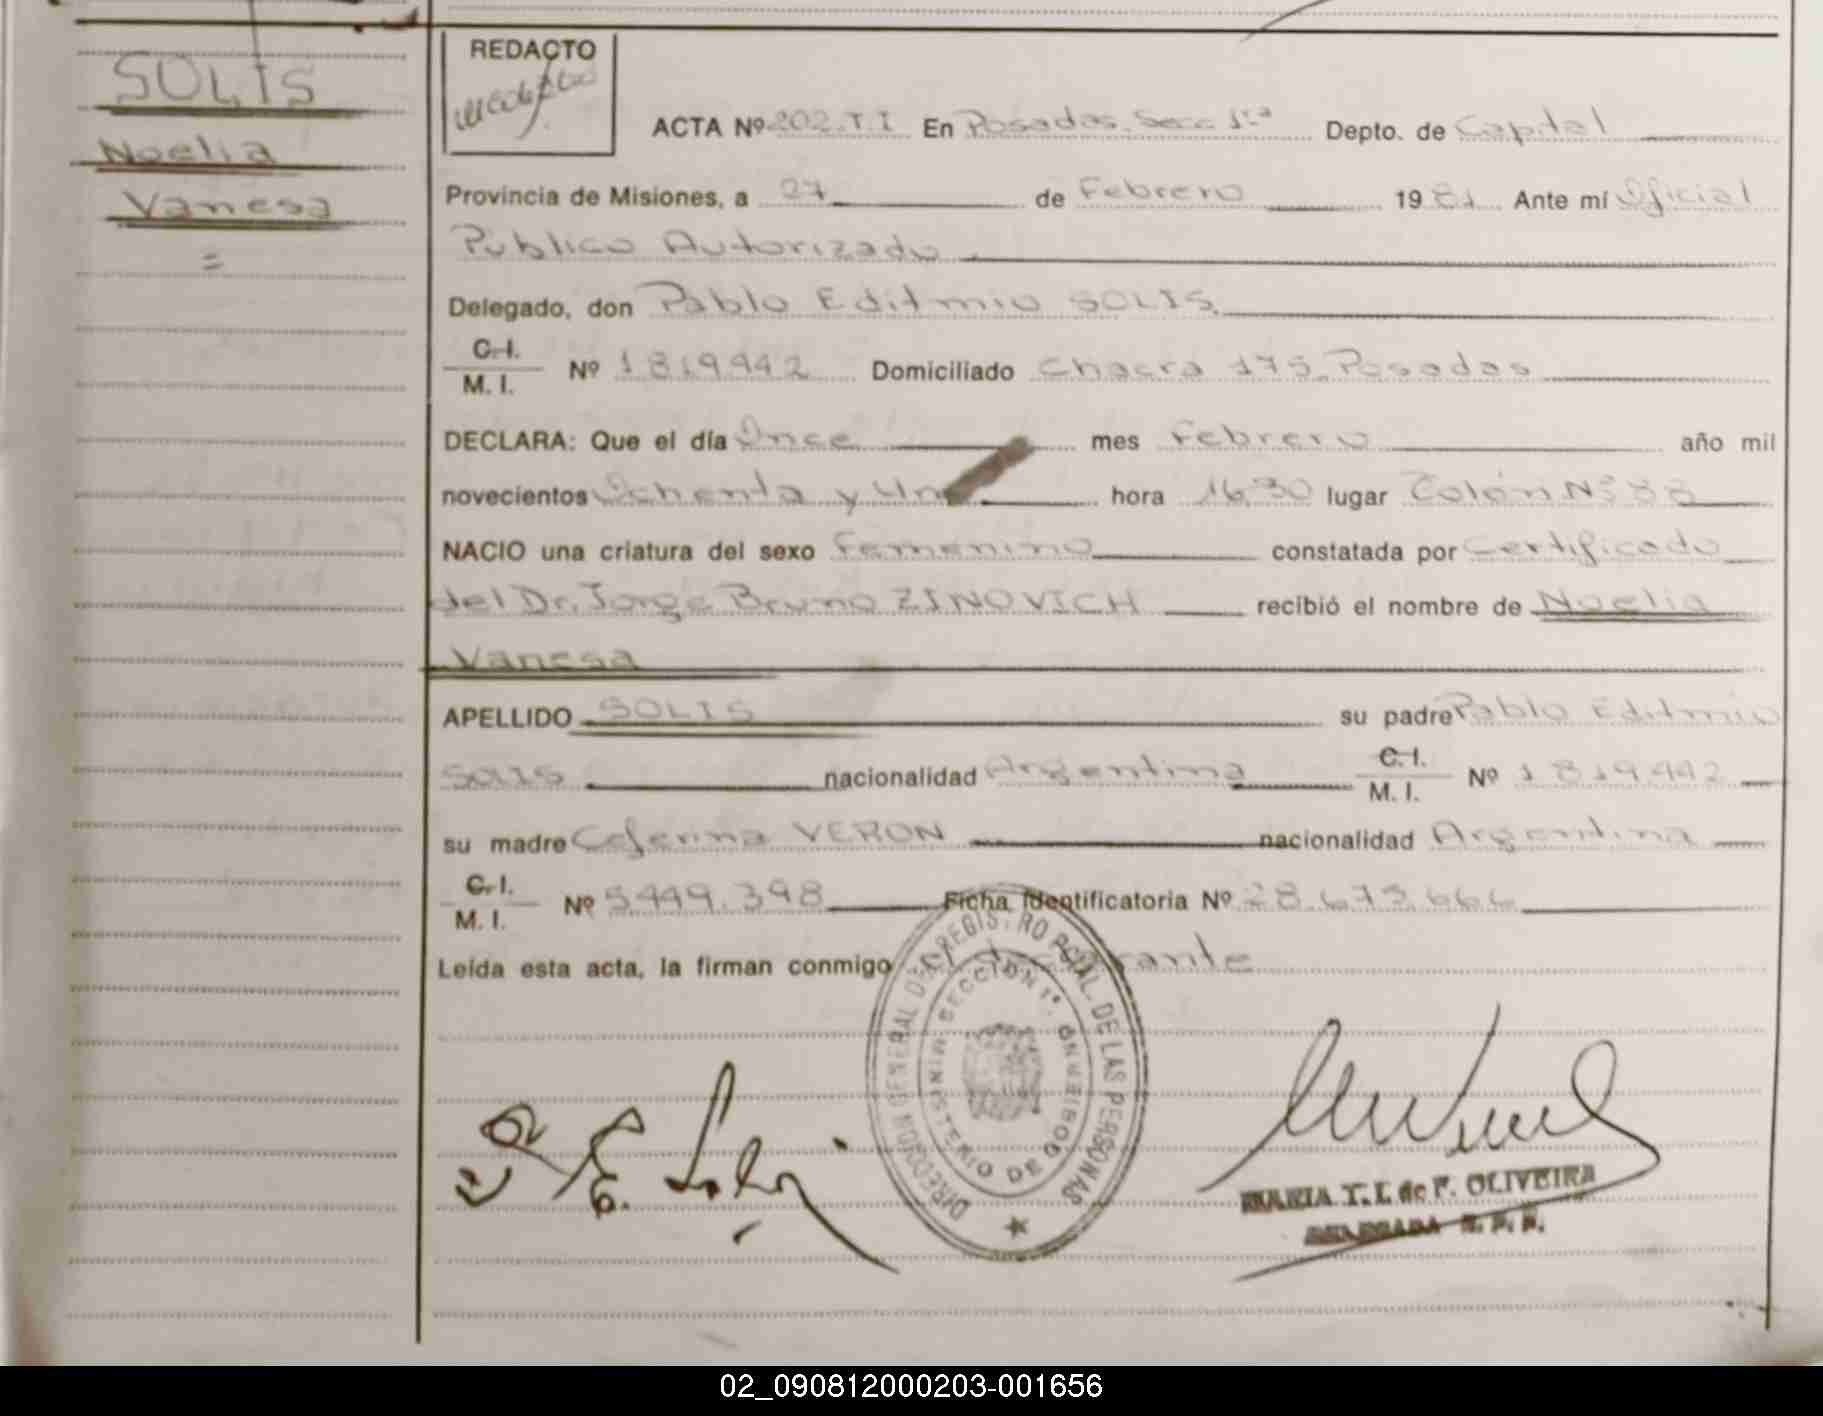 SOLIS
Noelia
Vanesa
=
REDACTO
ACTA Nº 202.T.I En Posadas. Secc 1ra Depto. de Capital
Provincia de Misiones, a 27 de Febrero 1981 Ante mí Oficial
Público Autorizado.
Delegado, don Pablo Editmio SOLIS.
C.I.
M. I. Nº 1819442 Domiciliado Chacra 175. Posadas
DECLARA: Que el día Once mes Febrero año mil
novecientos Ochenta y Un hora 16,30 lugar Colón Nº 88
NACIO una criatura del sexo Femenino constatada por Certificado
del Dr. Jorge Bruno ZINOVICH recibió el nombre de Noelia
Vanesa
APELLIDO SOLIS su padre Pablo Editmio
SOLIS nacionalidad Argentina C.I. M. I. Nº 1819.442
su madre Ceferina VERON nacionalidad Argentina
C.I.
M. I. Nº 5449.398 Ficha Identificatoria Nº 28.673.666
Leída esta acta, la firman conmigo el
DIRECCION GENERAL DEL REGISTRO PCIAL. DE LAS PERSONAS
SECCION 1ª. MINISTERIO DE GOBIERNO
MARIA T. I. de F. OLIVEIRA
DELEGADA R. P. P.
02_090812000203-001656